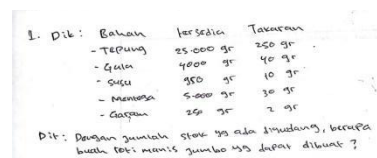 1. Dik: Bahan tersedia Takaran
- Tepung 25.000 gr 250 gr
- Gula 4000 gr 40 gr
- Susu 950 gr 10 gr
- Mentega 5.000 gr 30 gr
- Garam 250 gr 2 gr
Dit: Dengan jumlah stok yg ada digudang, berapa
buah roti manis jumbo yg dapat dibuat ?